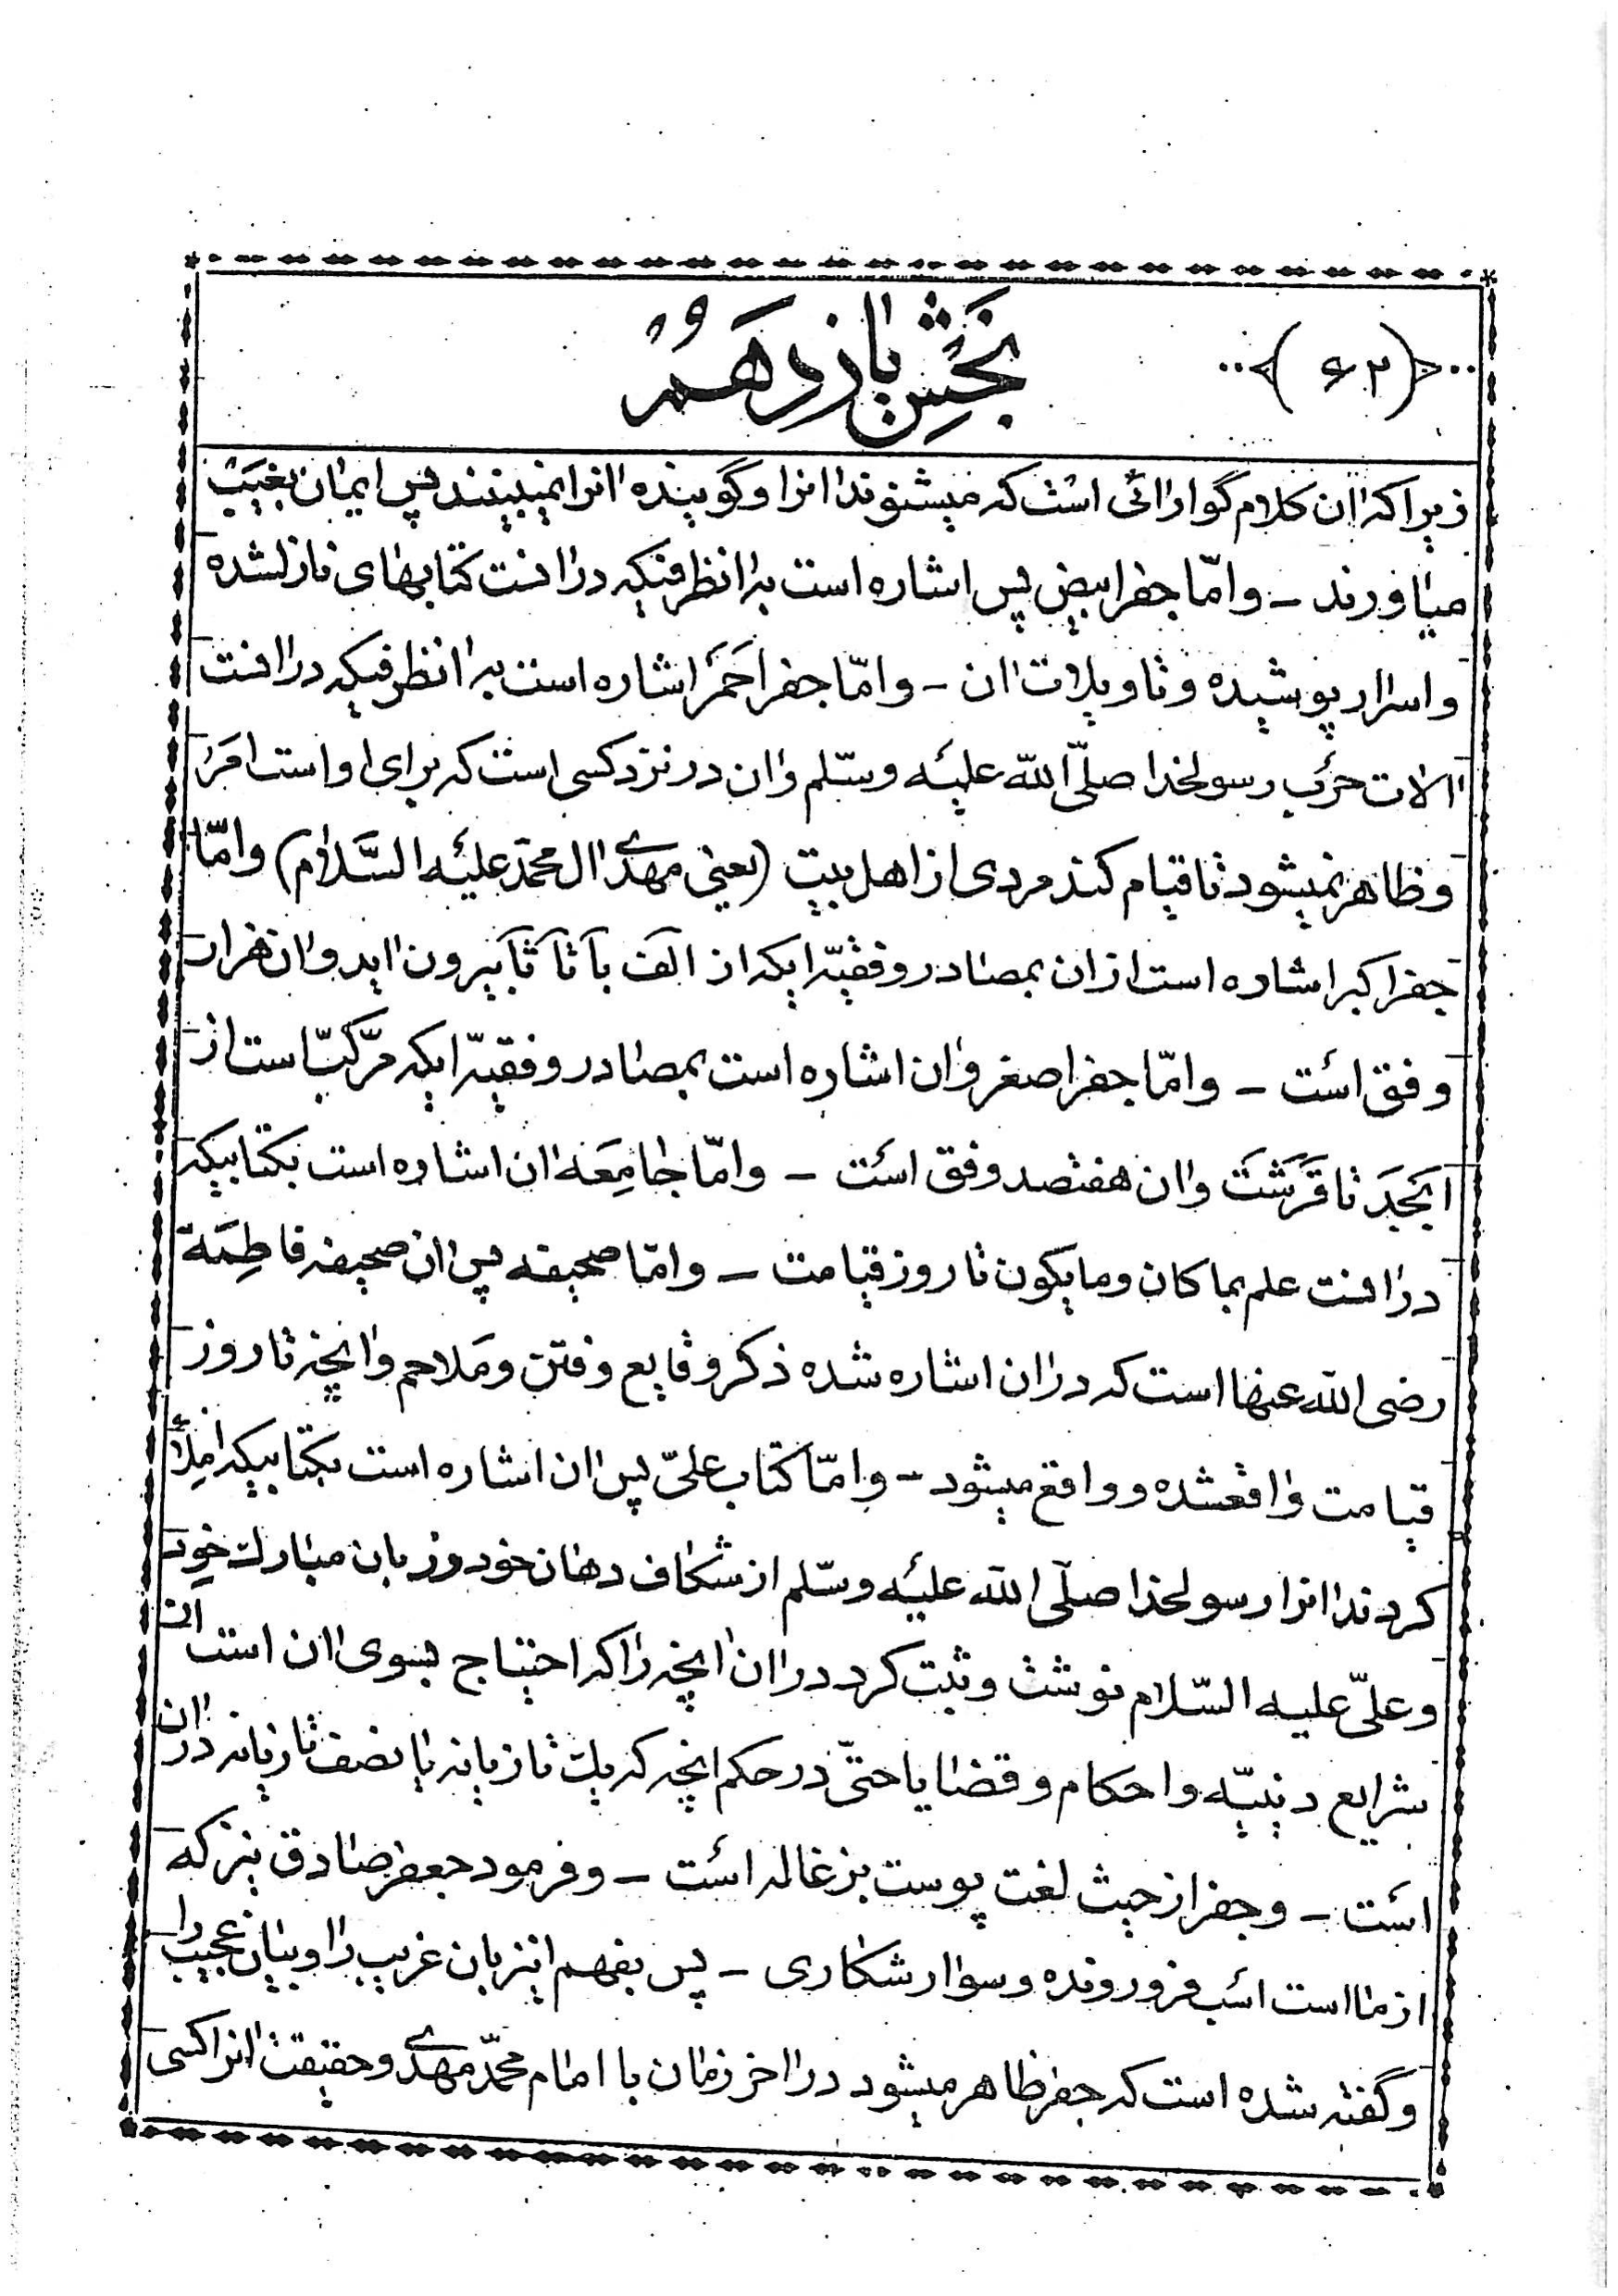 (۶۲)
بخش یازدهم
زیرا که ان کلام گوارائی است که میشنوند انرا و گوینده انرا نمیبینند پس ایمان بغیب
میاورند - و امّا جفر ابیض پس اشاره است به انظرفیکه در انست کتابهای نازلشده
و اسرار پوشیده و تاویلات ان - و امّا جفر احمر اشاره است به انظرفیکه در انست
الات حرب رسولخدا صلّی الله علیه وسّلم و ان در نزد کسی است که برای او است امر
و ظاهر نمیشود تا قیام کند مردی از اهل بیت (یعنی مهدی ال محمّد علیه السّلام) و امّا
جفر اکبر اشاره است از ان بمصادر وفقیّه ایکه از الف با تا ثا بیرون اید و ان هزار
وفق است - و امّا جفر اصغر و ان اشاره است بمصادر وفقیّه ایکه مرّکبّ است از
ابجد تا قرشت و ان هفتصد وفق است - و امّا جامعه ان اشاره است بکتابیکه
در انست علم بما کان و ما یکون تا روز قیامت - و امّا صحیفه پس ان صحیفه فاطمة
رضی الله عنها است که در ان اشاره شده ذکر وقایع و فتن و ملاحم و انچه تا روز
قیامت واقعشده و واقع میشود - و امّا کتاب علیّ پس ان اشاره است بکتابیکه املأ
کردند انرا رسولخدا صلّی الله علیه وسّلم از شکاف دهان خود و زبان مبارك خود
و علیّ علیه السّلام نوشت و ثبت کرد در ان انچه را که احتیاج بسوی ان است از
شرایع دینیّه و احکام و قضایا حتّی در حکم انچه که یك تازیانه یا نصف تازیانه در ان
است - و جفر از حیث لغت پوست بزغاله است - و فرمود جعفر صادق نیز که
از ما است اسب فرورونده و سوار شکاری - پس بفهم اینزبان غریب را و بیان عجیب را
و گفته شده است که جفر ظاهر میشود در اخر زمان با امام محمّد مهدی و حقیقت انرا کسی